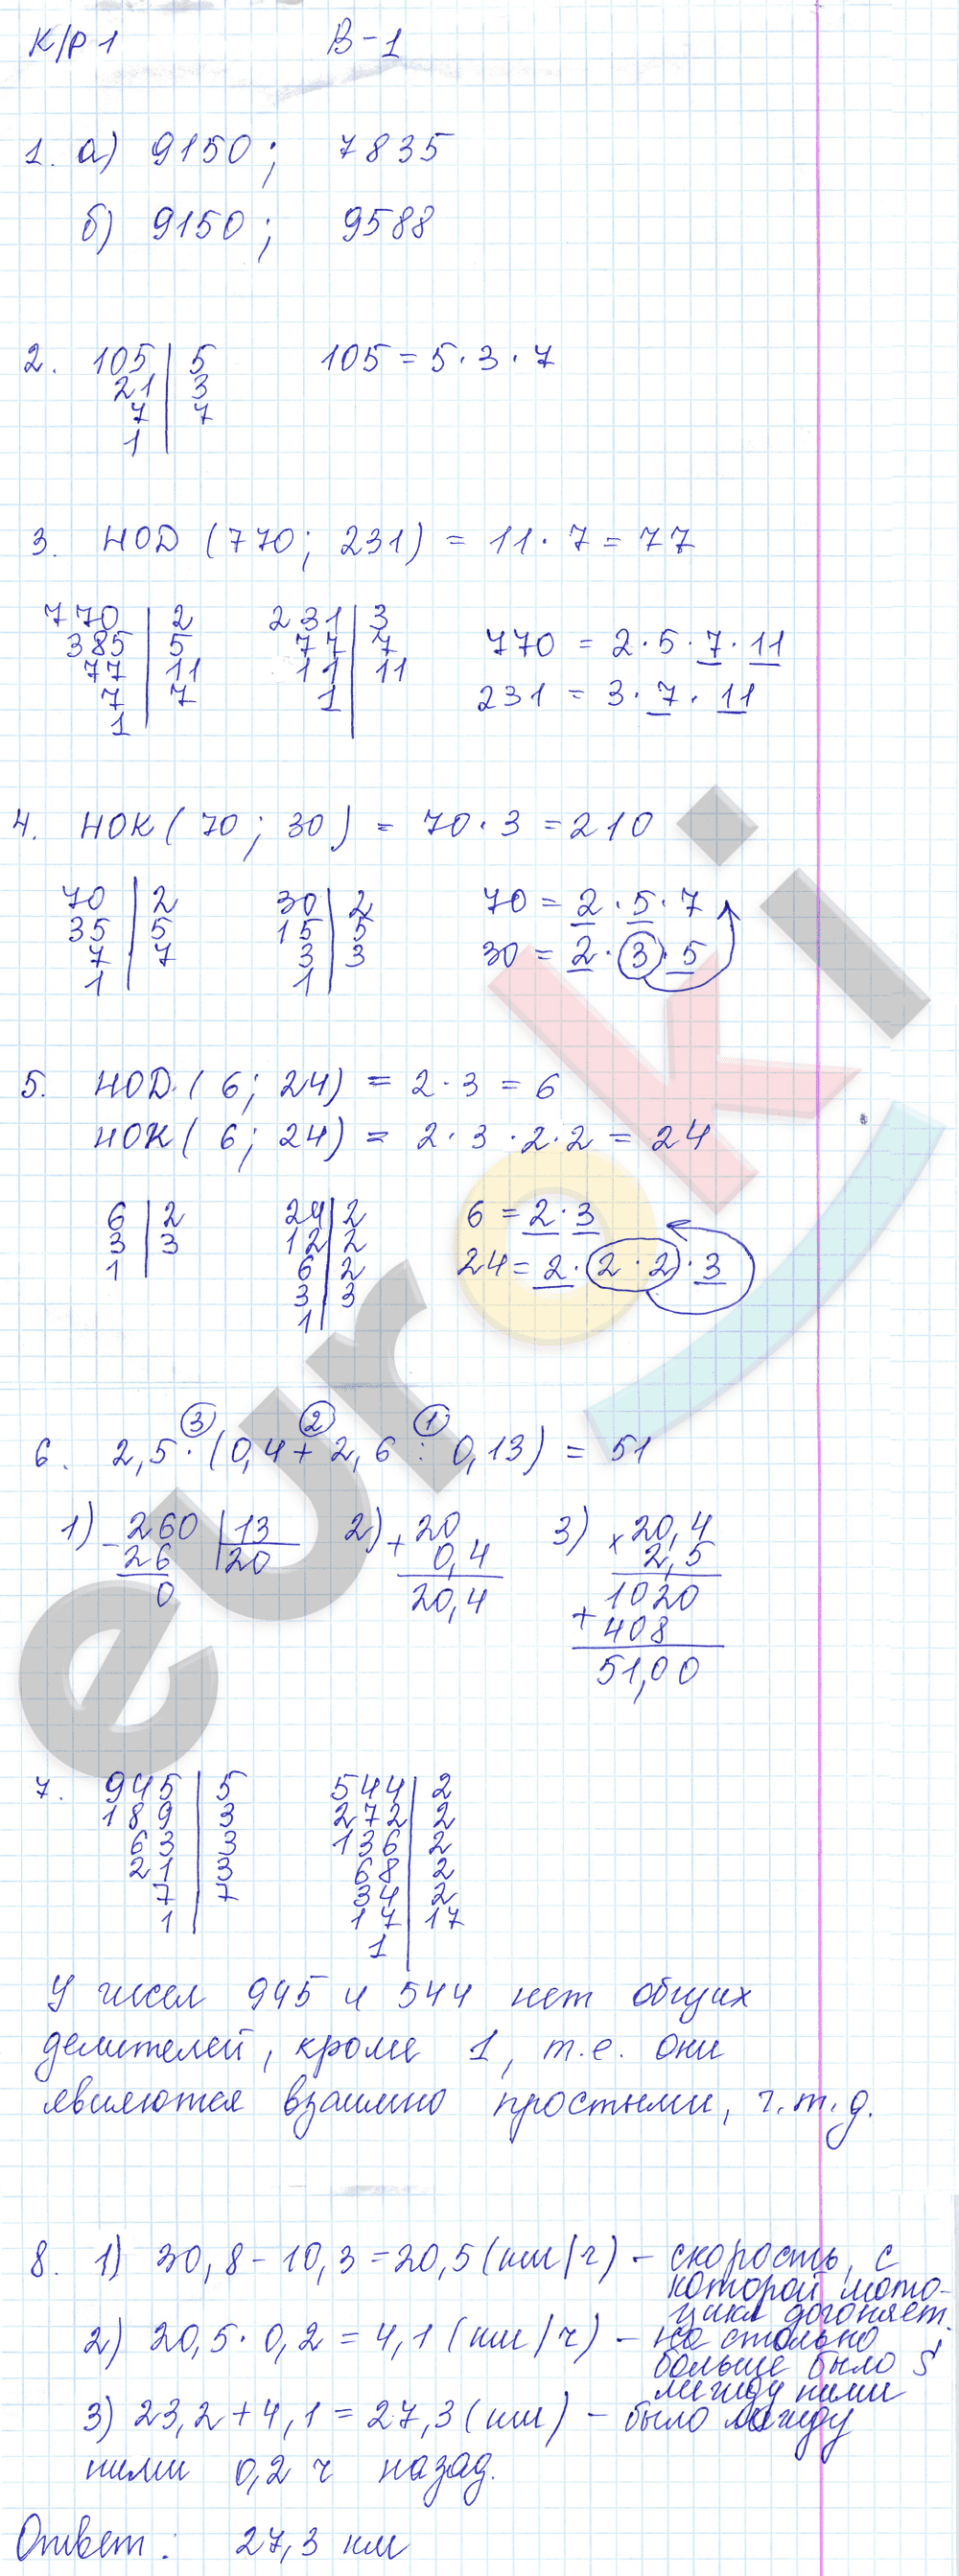 К/Р 1 В-1
1. а) 9150; 7835
б) 9150; 9588
2. 105 | 5 105 = 5 · 3 · 7
21 | 3
7 | 7
1 |
3. НОД (770; 231) = 11 · 7 = 77
770 | 2 231 | 3
385 | 5 77 | 7 770 = 2 · 5 · 7 · 11
77 | 11 11 | 11
7 | 7 1 | 231 = 3 · 7 · 11
1 |
4. НОК (70; 30) = 70 · 3 = 210
70 | 2 30 | 2 70 = 2 · 5 · 7
35 | 5 15 | 5
7 | 7 3 | 3 30 = 2 · 3 · 5
1 | 1 |
5. НОД (6; 24) = 2 · 3 = 6
НОК (6; 24) = 2 · 3 · 2 · 2 = 24
6 | 2 24 | 2 6 = 2 · 3
3 | 3 12 | 2
1 | 6 | 2 24 = 2 · 2 · 2 · 3
3 | 3
1 |
3 2 1
6. 2,5 · (0,4 + 2,6 : 0,13) = 51
1) - 260 | 13 2) + 20 3) × 20,4
26 | 20 0,4 2,5
0 20,4 1020
+ 408
51,00
7. 945 | 5 544 | 2
189 | 3 272 | 2
63 | 3 136 | 2
21 | 3 68 | 2
7 | 7 34 | 2
1 | 17 | 17
1 |
У чисел 945 и 544 нет общих
делителей, кроме 1, т.е. они
являются взаимно простыми, ч.т.д.
8. 1) 30,8 - 10,3 = 20,5 (км/ч) - скорость, с
которой мото-
цикл догоняет.
2) 20,5 · 0,2 = 4,1 (км/ч) - на столько
больше было S
между ними
3) 23,2 + 4,1 = 27,3 (км) - было между
ними 0,2 ч назад.
Ответ: 27,3 км
euroki